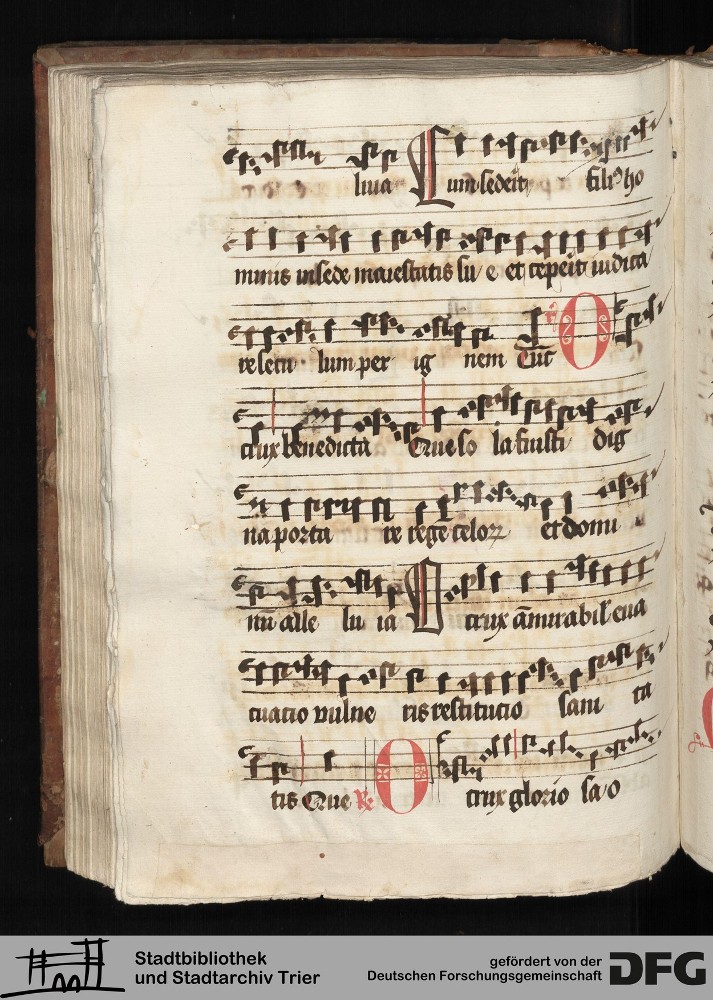 luia Cum sederit filiꝰ ho
minis in sede maiestatis su e et ceperit iudica
re secu lum per ig nem Tūc R O
crux benedicta Que so la fuisti dig
na porta re rege celoꝝ et domi
nū alle lu ia O crux āmirabil eua
cuatio vulne ris restitucio sani ta
tis Que R O crux glorio sa o
Stadtbibliothek
und Stadtarchiv Trier
gefördert von der
Deutschen Forschungsgemeinschaft DFG